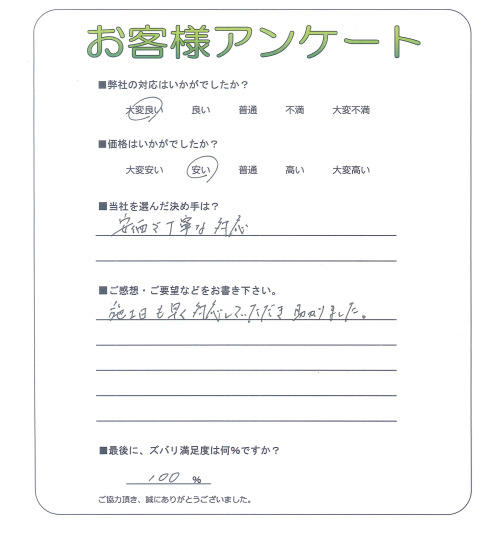 お客様アンケート
■弊社の対応はいかがでしたか？
大変良い 良い 普通 不満 大変不満
■価格はいかがでしたか？
大変安い 安い 普通 高い 大変高い
■当社を選んだ決め手は？
安価で丁寧な対応
■ご感想・ご要望などをお書き下さい。
施工日も早く対応していただき助かりました。
■最後に、ズバリ満足度は何％ですか？
100 ％
ご協力頂き、誠にありがとうございました。